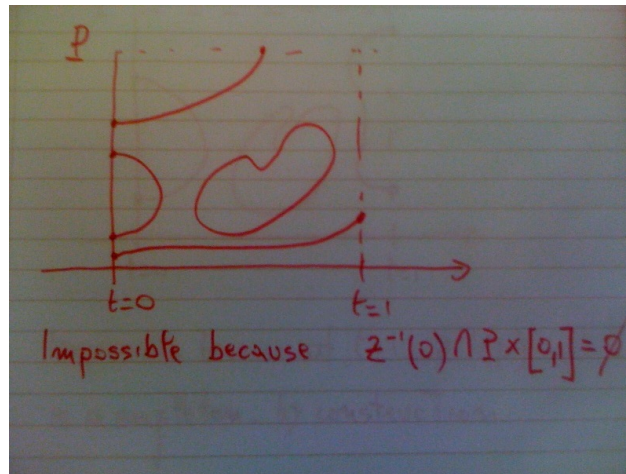 P
t=0 t=1
Impossible because z⁻¹(0) ∩ P × [0,1] = ∅